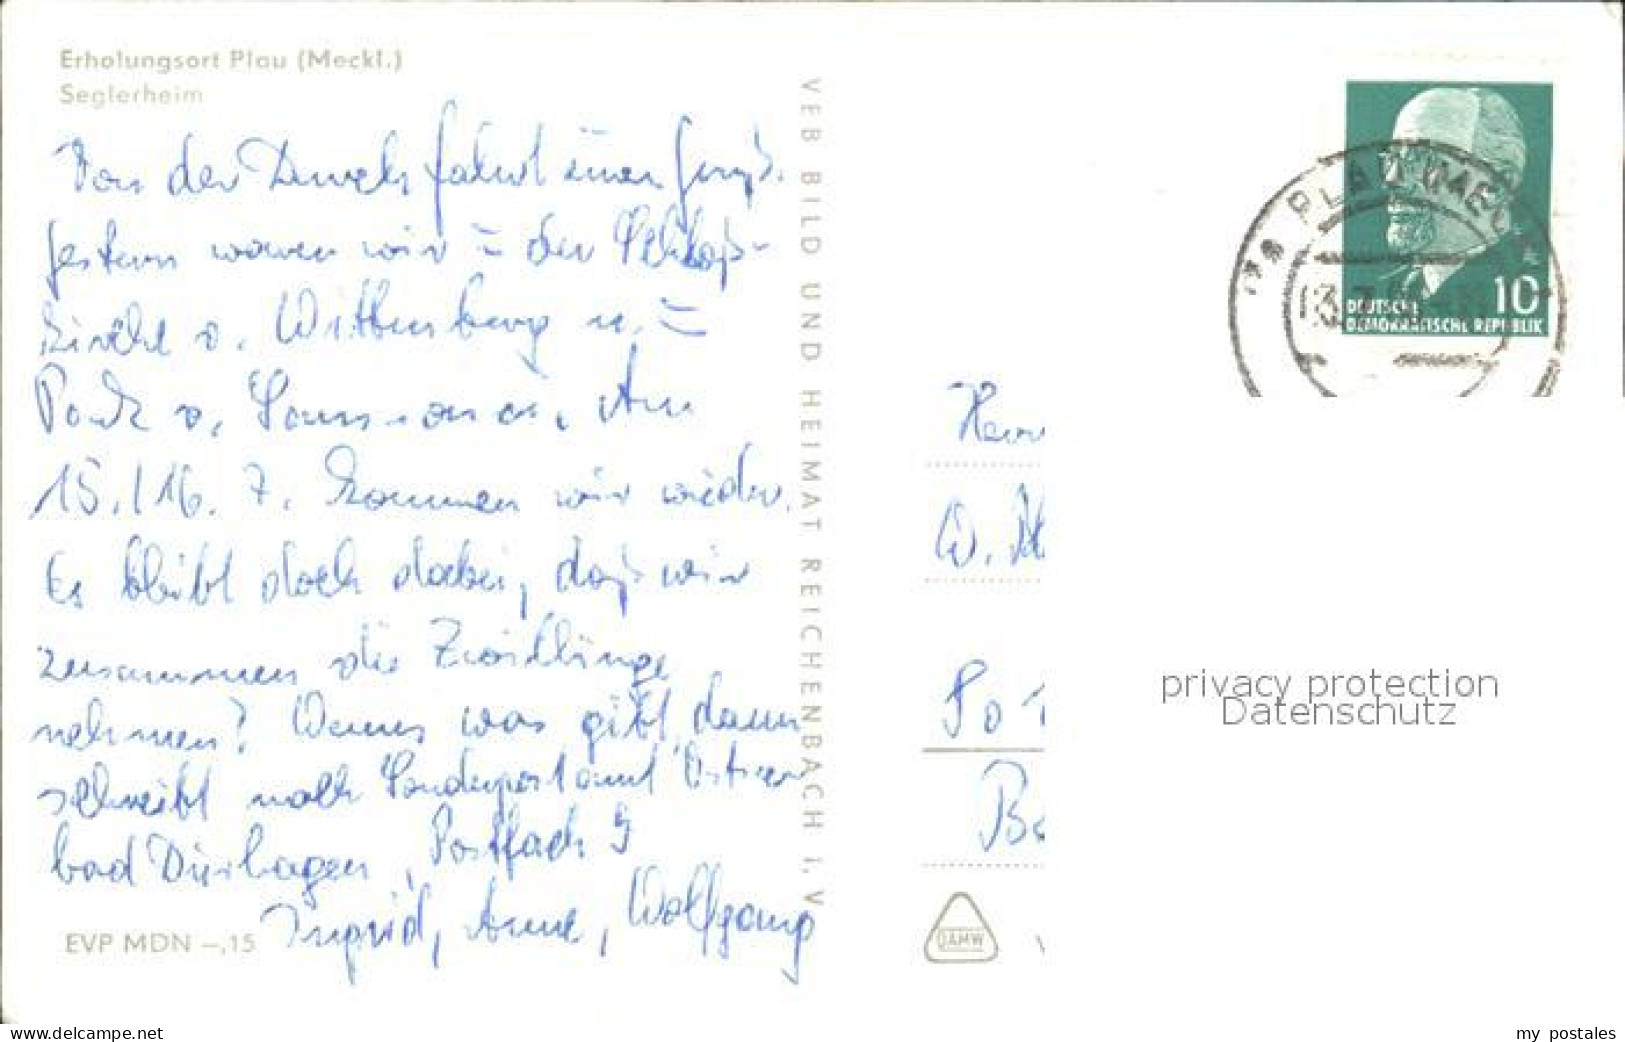 Erholungsort Plau (Meckl.)
Seglerheim
Von der Durchfahrt einen Gruß.
Gestern waren wir in der Schloß-
kirche v. Wittenberg u. im
Park v. Sanssouci. Am
15./16. 7. kommen wir wieder.
Es bleibt doch dabei, daß wir
zusammen die Zwillinge
nehmen? Wenns was gibt, dann
schreibt nach Sonderpostamt Ostsee-
bad Dierhagen, Postfach 9
Ingrid, Anne, Wolfgang
EVP MDN –,15
VEB BILD UND HEIMAT REICHENBACH i. V
PLAU (MECKL)
10
DEUTSCHE
DEMOKRATISCHE REPUBLIK
Herrn
W.
Be
DAMW
privacy protection
Datenschutz
www.delcampe.net
my_postales